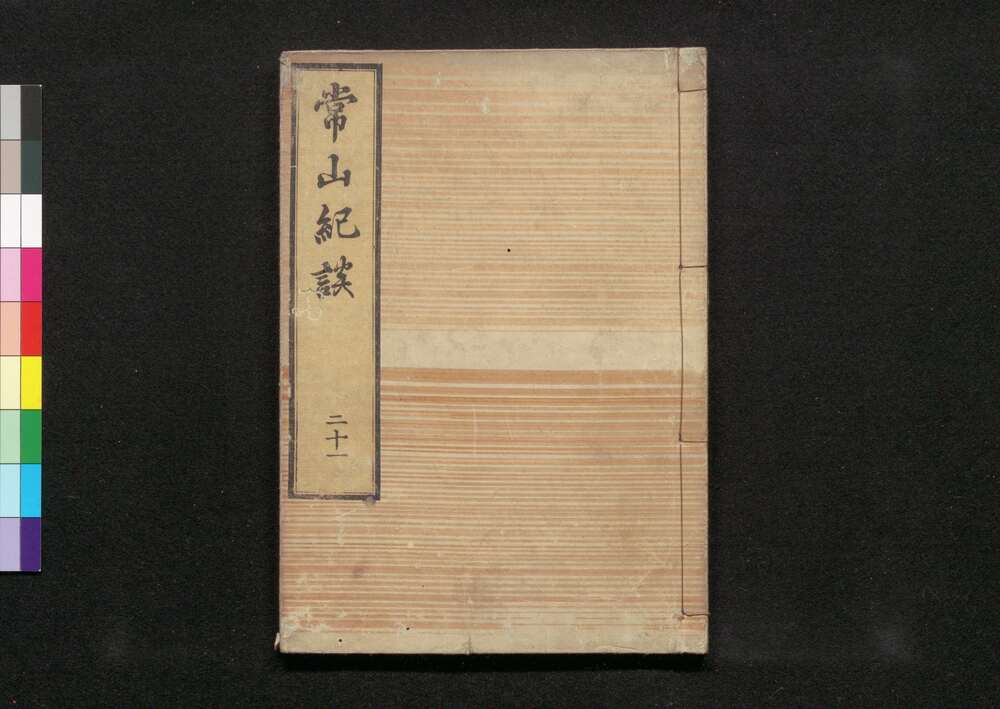 常山紀談
二十一